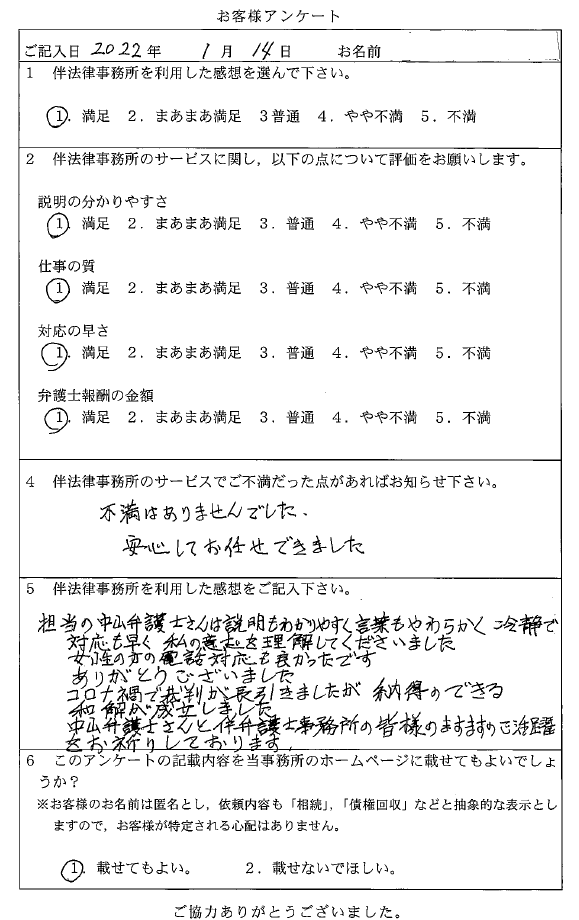 お客様アンケート
ご記入日 2022年 1月 14日 お名前
1 伴法律事務所を利用した感想を選んで下さい。
1. 満足 2. まあまあ満足 3普通 4. やや不満 5. 不満
2 伴法律事務所のサービスに関し，以下の点について評価をお願いします。
説明の分かりやすさ
1. 満足 2. まあまあ満足 3. 普通 4. やや不満 5. 不満
仕事の質
1. 満足 2. まあまあ満足 3. 普通 4. やや不満 5. 不満
対応の早さ
1. 満足 2. まあまあ満足 3. 普通 4. やや不満 5. 不満
弁護士報酬の金額
1. 満足 2. まあまあ満足 3. 普通 4. やや不満 5. 不満
4 伴法律事務所のサービスでご不満だった点があればお知らせ下さい。
不満はありませんでした、
安心してお任せできました
5 伴法律事務所を利用した感想をご記入下さい。
担当の中山弁護士さんは説明もわかりやすく言葉もやわらかく冷静で
対応も早く 私の意志を理解してくださいました
女性の方の電話対応も良かったです
ありがとうございました
コロナ禍で裁判が長引きましたが 納得のできる
和解が成立しました
中山弁護士さんと伴弁護士事務所の皆様のますますのご活躍
をお祈りしております。
6 このアンケートの記載内容を当事務所のホームページに載せてもよいでしょ
うか？
※お客様のお名前は匿名とし，依頼内容も「相続」，「債権回収」などと抽象的な表示とし
ますので，お客様が特定される心配はありません。
1. 載せてもよい。 2. 載せないでほしい。
ご協力ありがとうございました。